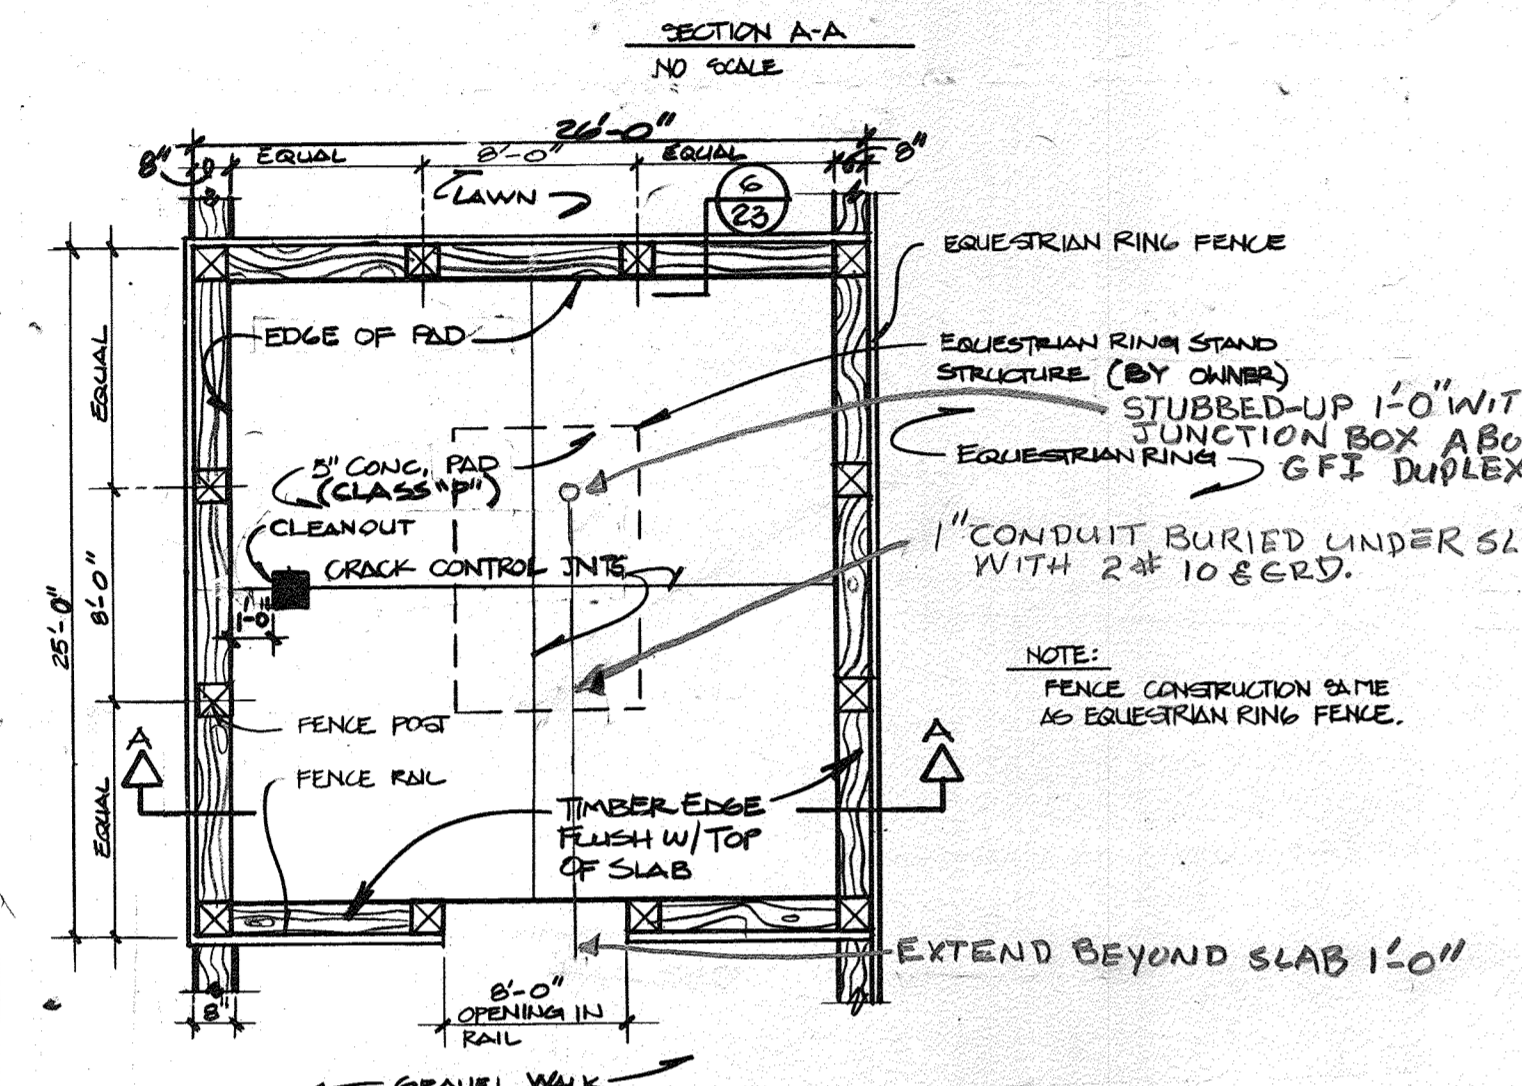 SECTION A-A
NO SCALE
26'-0"
8"
EQUAL
8'-0"
EQUAL
8"
LAWN
6
23
EQUESTRIAN RING FENCE
EDGE OF PAD
EQUESTRIAN RING STAND
STRUCTURE (BY OWNER)
STUBBED-UP 1'-0" WIT
JUNCTION BOX ABO
GFI DUPLEX
EQUESTRIAN RING
EQUAL
5" CONC. PAD
(CLASS "P")
CLEANOUT
CRACK CONTROL JNTS
1" CONDUIT BURIED UNDER SL
WITH 2 # 10 & GRD.
1'-0"
8'-0"
25'-0"
NOTE:
FENCE CONSTRUCTION SAME
AS EQUESTRIAN RING FENCE.
FENCE POST
A
A
FENCE RAIL
EQUAL
TIMBER EDGE
FLUSH W/ TOP
OF SLAB
EXTEND BEYOND SLAB 1'-0"
8"
8'-0"
OPENING IN
RAIL
GRAVEL WALK